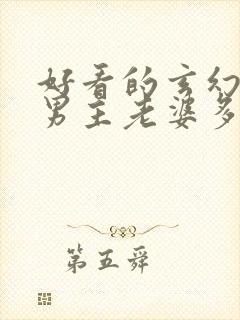 好看的玄幻
男主老婆多
第五舜